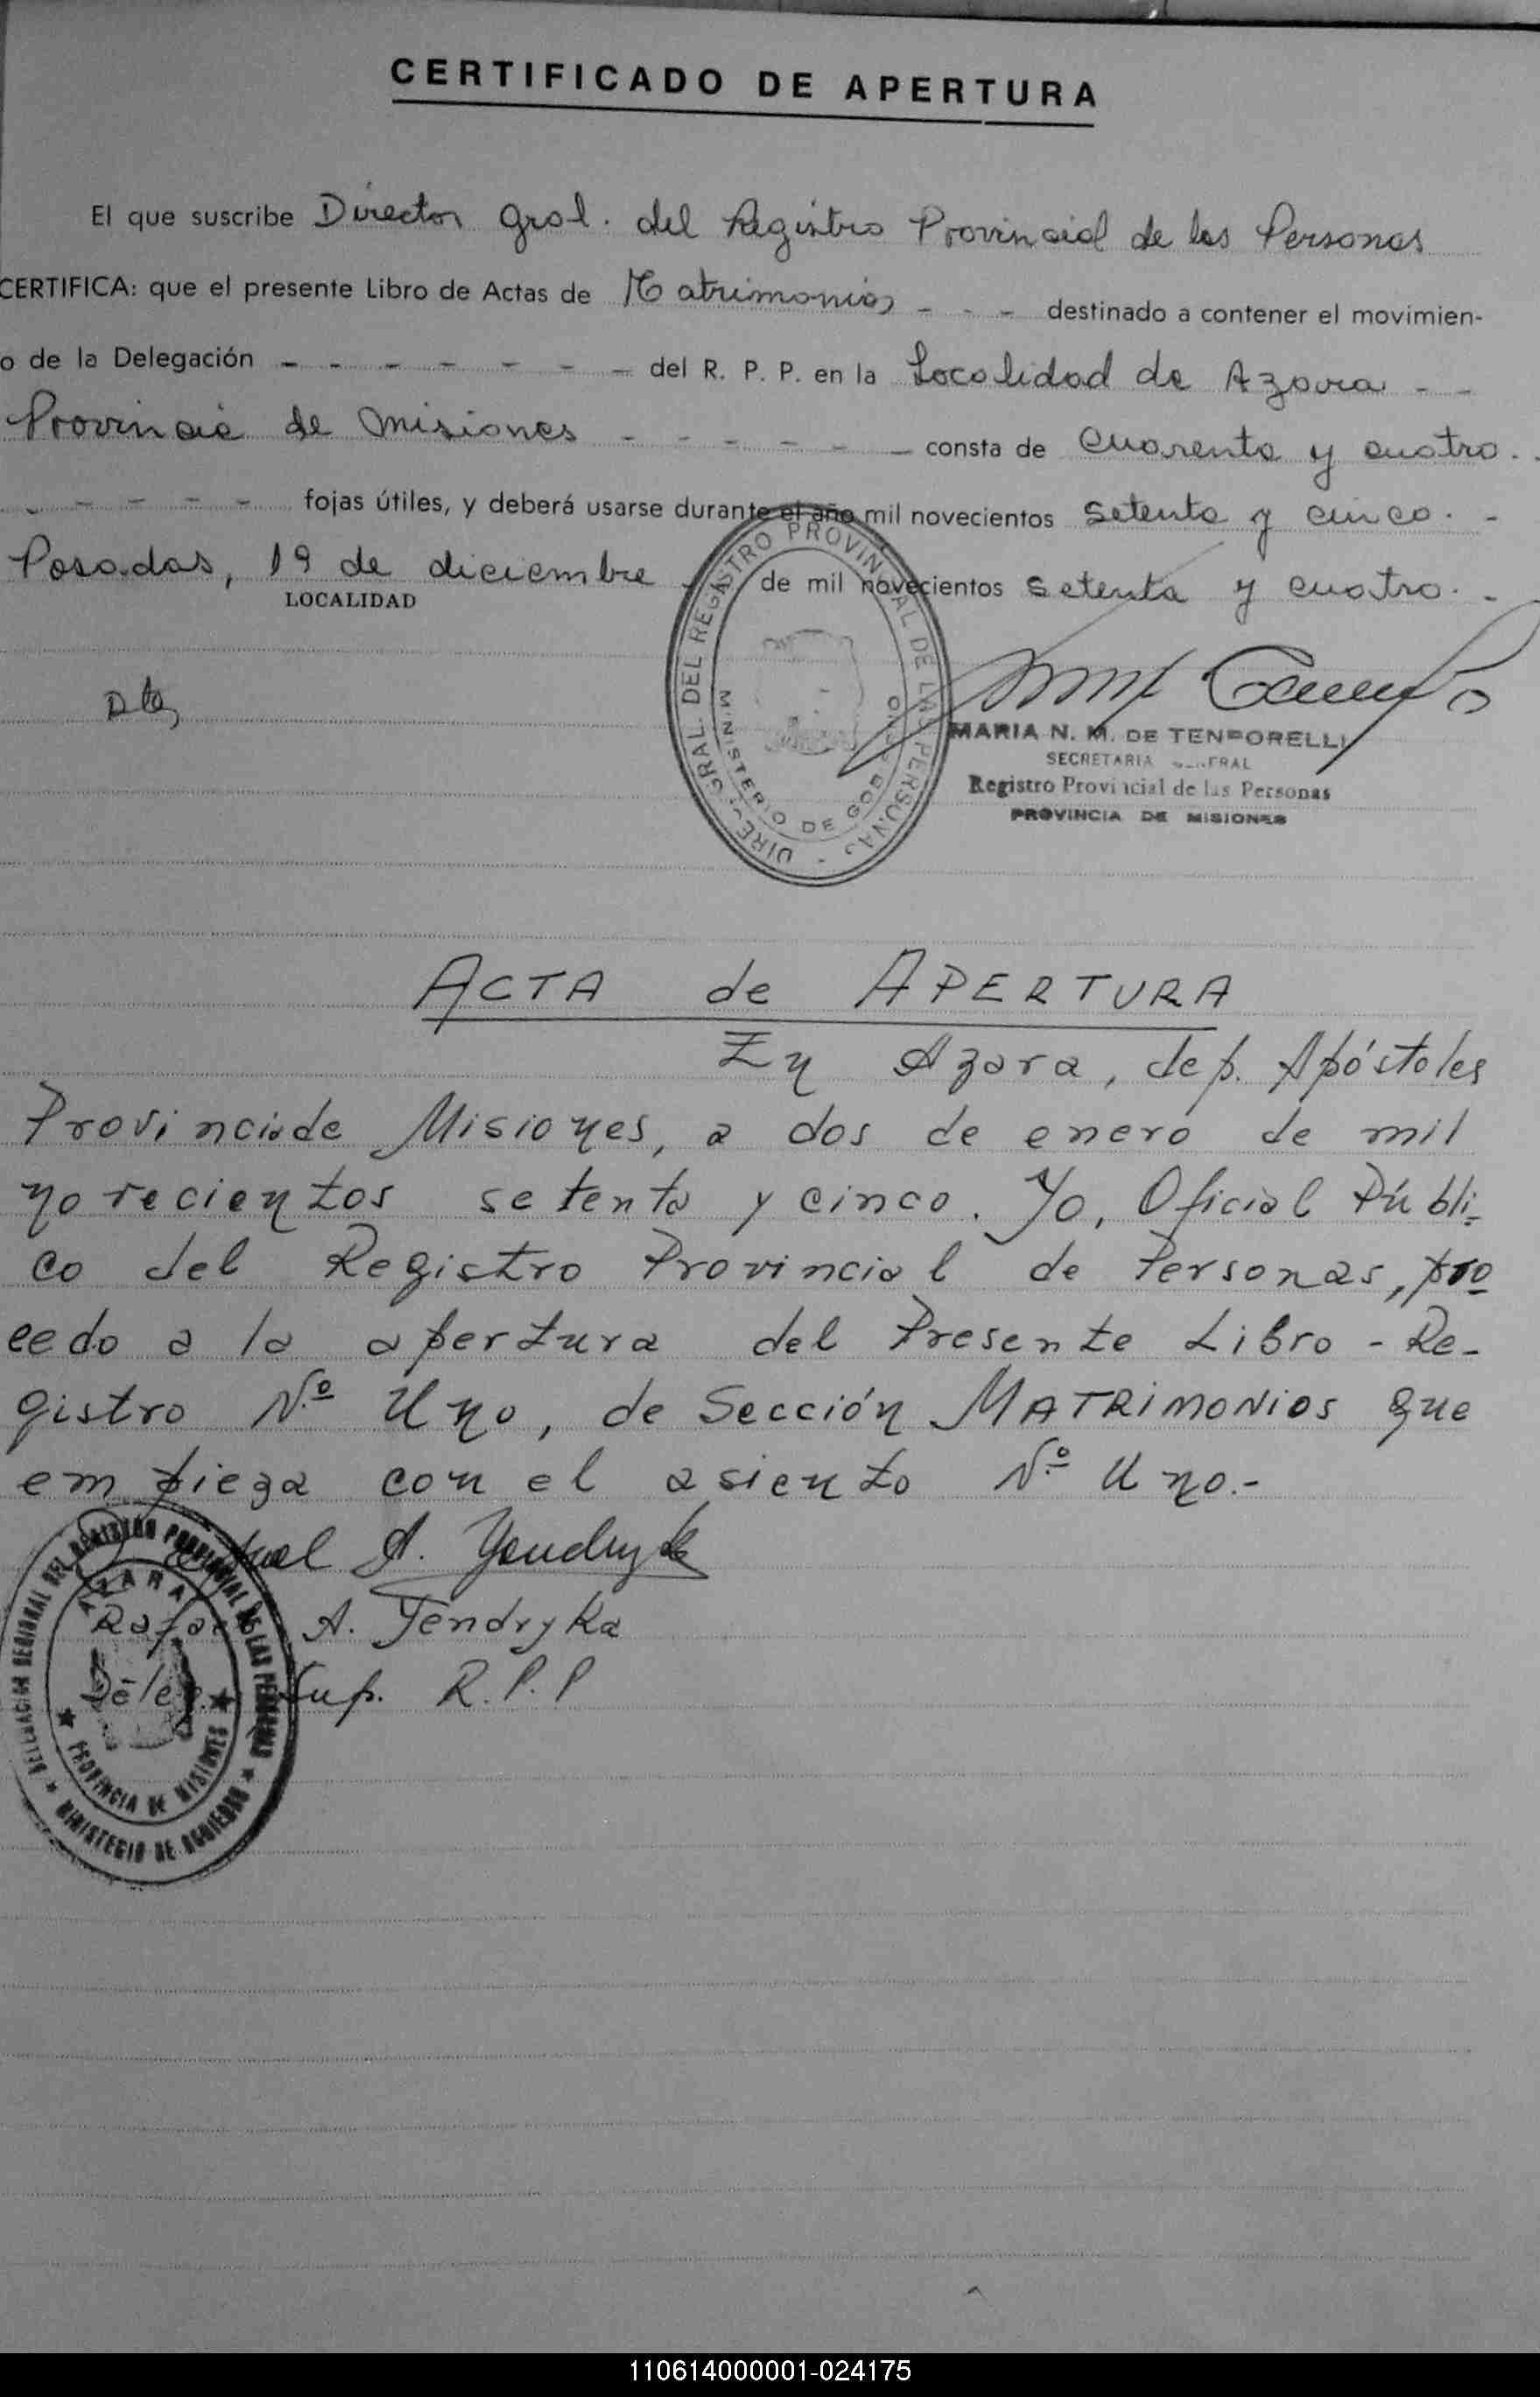 CERTIFICADO DE APERTURA
El que suscribe Director Gral. del Registro Provincial de las Personas
CERTIFICA: que el presente Libro de Actas de Matrimonios - - - destinado a contener el movimien-
o de la Delegación - - - - - - - del R. P. P. en la Localidad de Azara - -
Provincia de Misiones - - - - - - consta de cuarenta y cuatro. -
- - - - - fojas útiles, y deberá usarse durante el año mil novecientos setenta y cinco. -
Posadas, 19 de diciembre - de mil novecientos setenta y cuatro. - -
LOCALIDAD
DIREC. GRAL. DEL REGISTRO PROVINCIAL DE LAS PERSONAS -
MINISTERIO DE GOBIERNO
MARIA N. M. DE TEMPORELLI
SECRETARIA GENERAL
Registro Provincial de las Personas
PROVINCIA DE MISIONES
ACTA de APERTURA
En Azara, dep. Apóstoles
Provincia de Misiones, a dos de enero de mil
novecientos setenta y cinco. Yo, Oficial Públi-
co del Registro Provincial de Personas, pro
cedo a la apertura del Presente Libro - Re-
gistro N.º Uno, de Sección MATRIMONIOS que
empieza con el asiento N.º Uno.-
Rafael A. Yendryka
Deleg. Sup. R.P.P
DELEGACION REGIONAL DEL REGISTRO PROVINCIAL DE LAS PERSONAS
AZARA
PROVINCIA DE MISIONES
MINISTERIO DE GOBIERNO
110614000001-024175